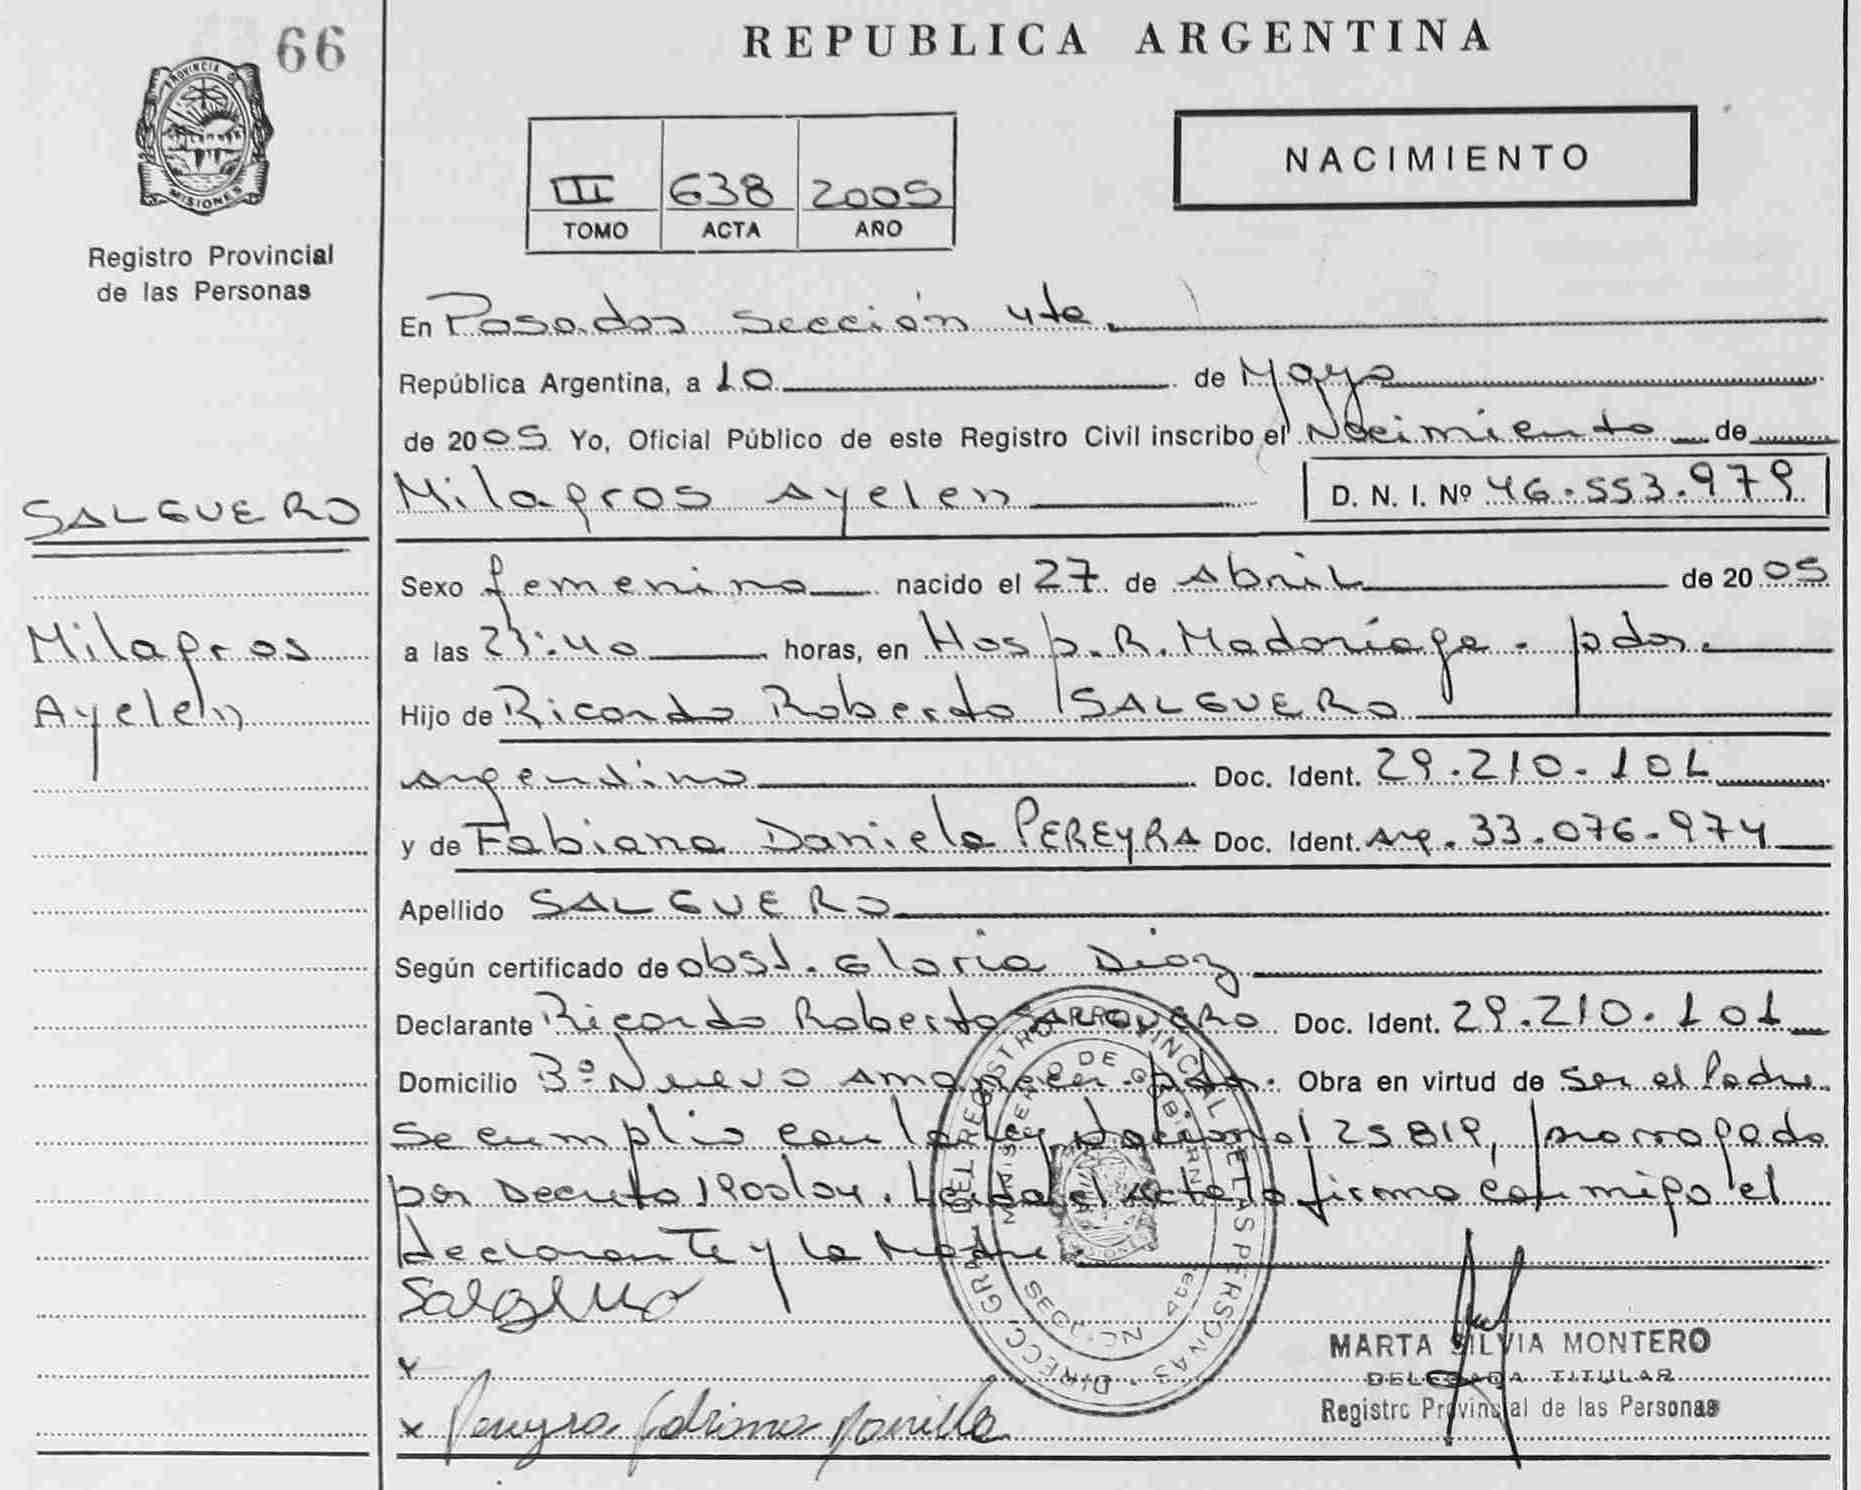 66
REPUBLICA ARGENTINA
PROVINCIA D
MISIONES
Registro Provincial
de las Personas
NACIMIENTO
III 638 2005
TOMO ACTA AÑO
En Posadas Sección 4ta.
República Argentina, a 10 de Mayo
de 2005 Yo, Oficial Público de este Registro Civil inscribo el Nacimiento de
SALGUERO
Milagros Ayelen
D. N. I. Nº 46.553.979
Sexo femenino nacido el 27 de Abril de 2005
Milagros
Ayelen
a las 23:40 horas, en Hosp. R. Madariaga - pdas.
Hijo de Ricardo Roberto SALGUERO
argentino Doc. Ident. 29.210.101
y de Fabiana Daniela PEREYRA Doc. Ident. Arg. 33.076.974
Apellido SALGUERO
Según certificado de obst. Gloria Diaz
Declarante Ricardo Roberto Doc. Ident. 29.210.101
Domicilio Bº Nuevo Amanecer - pdas. Obra en virtud de Ser el Padre
Se cumplio con la Ley Nacional 25819, prorrogado
por Decreto 1900/04. Leida el Acta la firma conmigo el
declarante y la Madre
Salguero
x
x Pereyra Fabiana Daniela
DIRECC. GRAL DEL REGISTRO PROVINCIAL DE LAS PERSONAS
MINISTERIO DE GOBIERNO
MARTA SILVIA MONTERO
DELEGADA TITULAR
Registro Provincial de las Personas